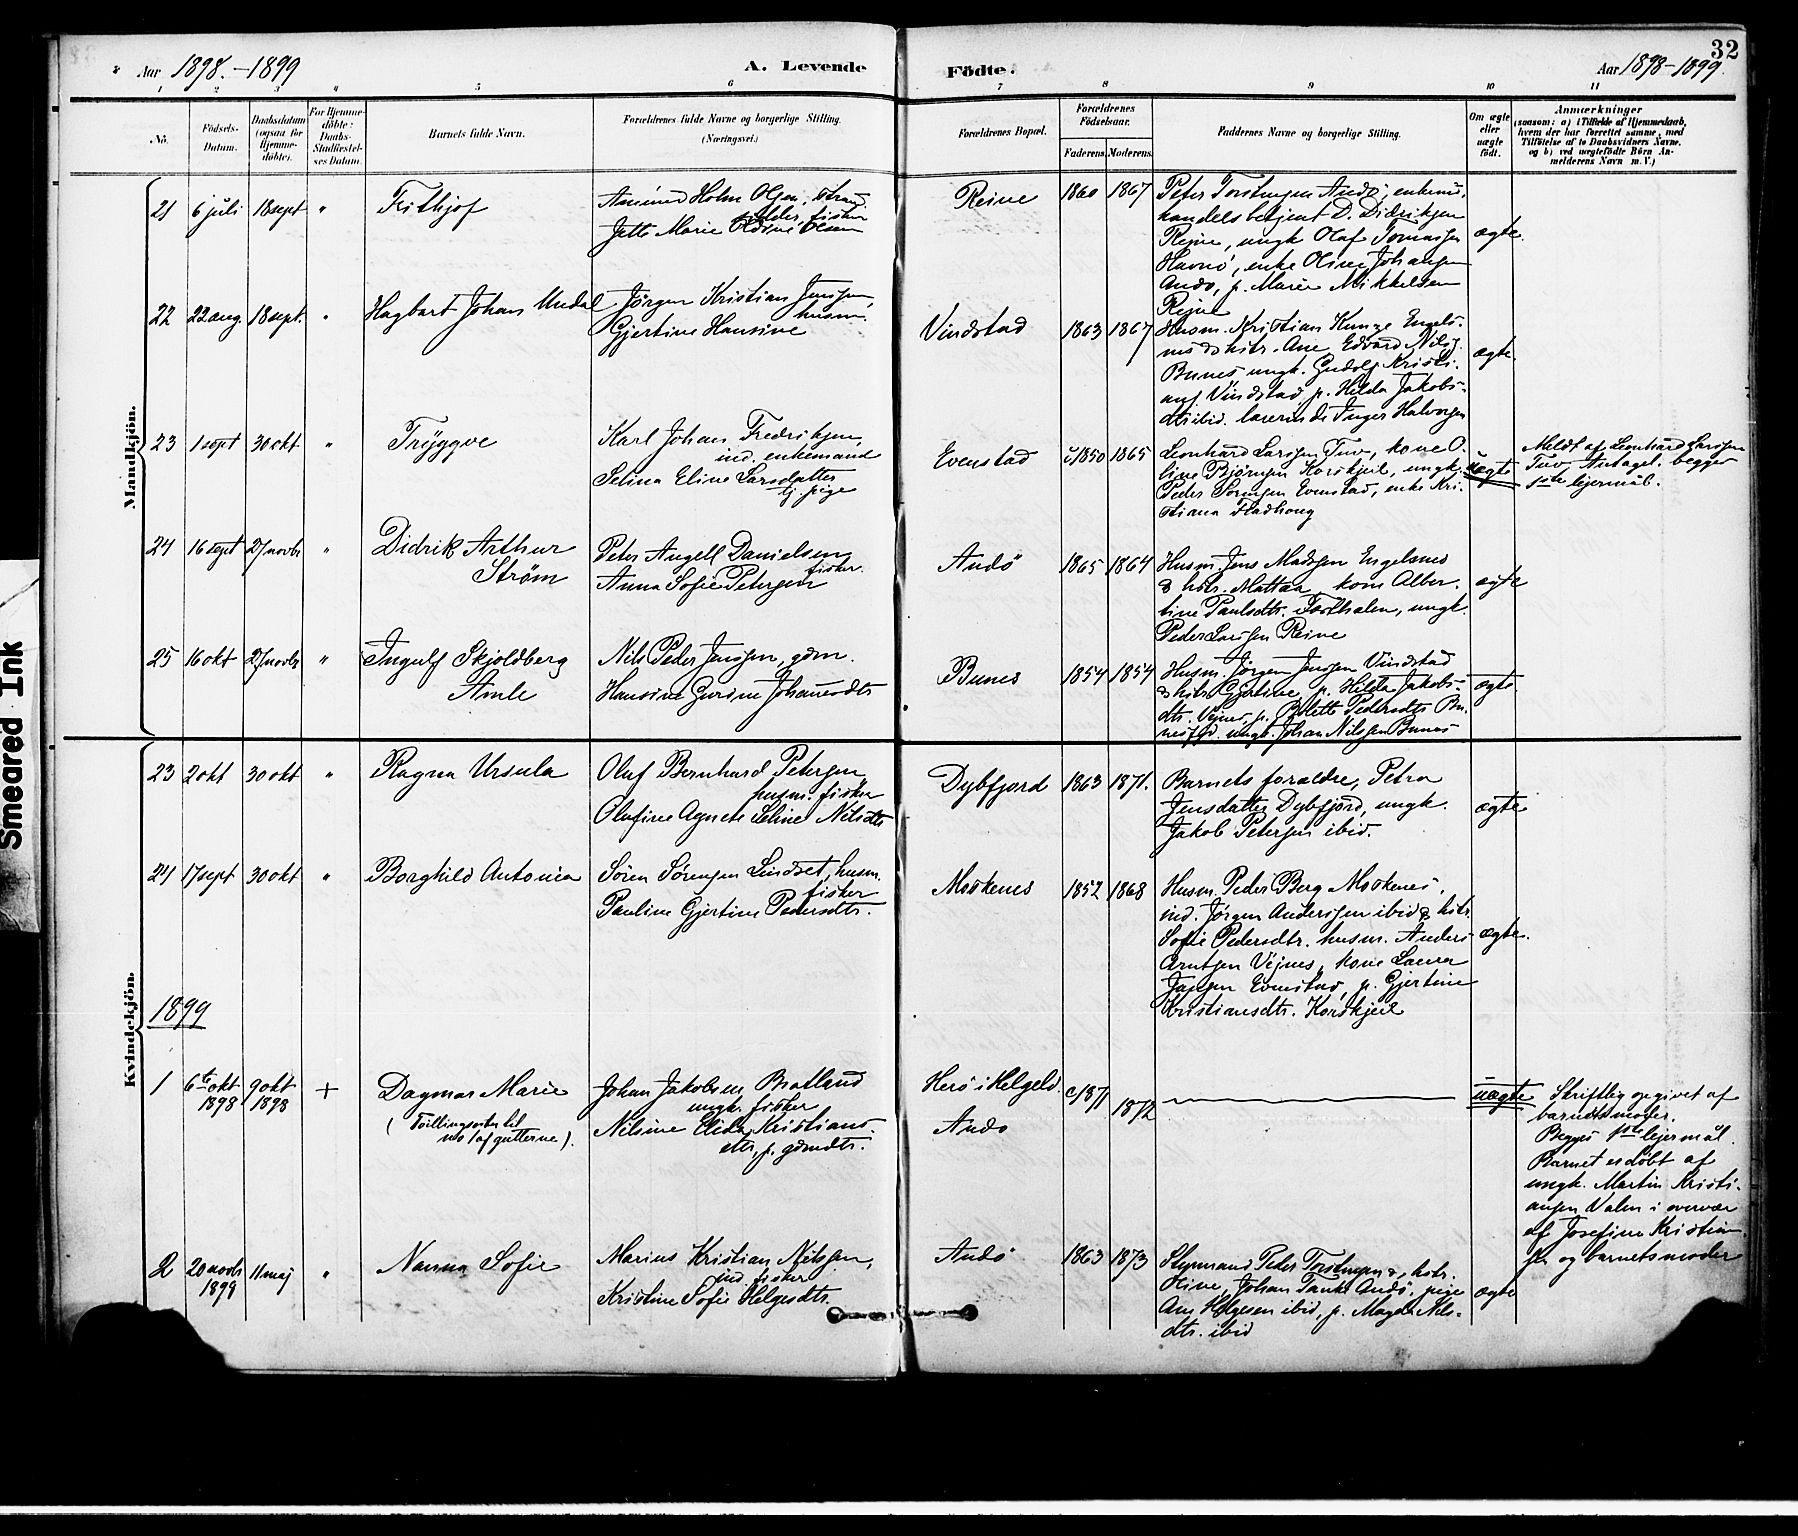 32
Aar 1898.-1899
A. Levende
Födte.
Aar 1898-1899.
1 2 3 4 5 6 7 8 9 10 11
No.
Födsels-
Datum.
Daabsdatum
(ogsaa for
Hjemme-
döbte).
For Hjemme-
döbte:
Daabs-
Stadfæstel-
ses Datum.
Barnets fulde Navn.
Forældrenes fulde Navne og borgerlige Stilling.
(Næringsvei.)
Forældrenes Bopæl.
Forældrenes
Födselsaar.
Faderens. Moderens.
Faddernes Navne og borgerlige Stilling.
Om ægte
eller
uægte
födt.
Anmærkninger
(saasom: a) i Tilfælde af Hjemmedaab,
hvem der har forrettet samme, med
Tilföielse af to Daabsvidners Navne,
og b) ved uægtefödte Börn An-
melderens Navn m. V.)
Mandkjön.
21 6 juli 18 sept " Frithjof
Holm Olsen,
fisker
Jette Marie
Reine 1860 1867
Peter Torstensen Andø, enkem.
handelsbetjent D. Didriksen
Rejne, ungk Olaf Tomassen
Havnö, enke Oline Johansen
Andø, p. Marie Mikkelsen
Rejne
ægte.
22 22 aug. 18 sept. " Hagbart Johan Undal
Jørgen Kristian Jenssen,
husm.
Gjertine Hansine
Vindstad 1863 1867
Husm. Kristian Kunze Engels-
nes & hstr. Ane, Edvard Nilss.
Bunes, ungk. Gudolf Kristi-
ans. Vindstad, p. Hilda Jakobs-
dtr ibid. lærerinde Inger Halvorsen
ægte.
23 1 sept 30 okt " Trÿggve
Karl Johan Fredriksen,
ind. enkemand
Selina Eline Larsdatter
tj. pige
Evenstad c 1850 1865
Leonhard Larssen Tuv, kone O-
line Bjørnsen Korskjeil, ungk.
Peder Sørensen Evenstad, enke Kri-
stiana Fladhaug
uægte
Meldt af Leonhard Larssen
Tuv. Antagel. begges
1ste lejermål.
24 16 sept 27 novbr " Didrik Arthur
Strøm
Peter Angell Danielsen,
fisker.
Anna Sofie Petersen
Andö 1865 1864
Husm. Jens Madsen Engelsnes
& hstr. Mattea, kone Alber-
tine Paulsdtr. Forsthalen, ungk.
Peder Larssen Reine
ægte
25 16 okt 27 novbr " Ingulf Skjoldberg
Amle
Nils Peder Jenssen, gdm.
Hansine Gurine Johansdtr
Bunes 1854 1854
Husm. Jørgen Jenssen Vindstad
& hstr Gjertine, p. Hilda Jakobs-
dtr. Vejnes, p. Bolette Pedersdtr Bu-
nesfjd. ungk. Johan Nilssen Bunes
ægte
Kvindekjön.
23 2 okt 30 okt " Ragna Ursula
Oluf Bernhard Petersen
husm. fisker
Olufine Agnete Seline Nilsdtr
Dybfjord 1863 1871.
Barnets forældre, Petra
Jensdatter Dybfjord, ungk.
Jakob Petersen ibid.
ægte
24 17 sept 30 okt " Borghild Antonia
Søren Sørensen Lindset, husm.
fisker
Pauline Gjertine Pedersdtr.
Moskenes 1852 1868
Husm. Peder Berg Moskenes,
ind. Jørgen Anderssen ibid & hstr.
Sofie Pedersdtr. husm. Anders
Arntsen Vejnes, kone Laura
Evenstad, p. Gjertine
Kristiansdtr. Korskjeil
ægte.
1899
1 6te okt 1898 9 okt 1898 + Dagmar Marie
(Tvillingsøster til
no 1 af gutterne).
Johan Jakobsen Bratland
ungk. fisker
Nilsine Elida Kristians-
dtr, p. gdmdtr.
Herö i Helgeld. c 1871
Andø 1872
uægte
Skriftlig opgivet af
barnets moder.
Begges 1ste lejermål.
Barnet er döbt af
ungk. Martin Kristi-
ansen Valen i overvær
af Josefine Kristian-
sen og barnets moder
2 20 novbr 1899 11 maj " Nanna Sofie
Marius Kristian Nilssen,
ind. fisker
Kristine Sofie Helgesdtr.
Andø 1863 1873
Styrmand Peter Torstensen &, hstr.
Oline, Johan Tank Andö, pige
Ane Helgesen ibid, p. Magda Nils-
dtr. ibid
ægte
Smeared Ink